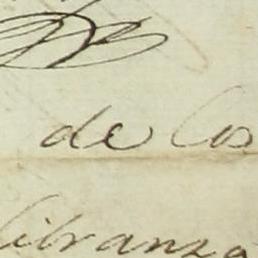 de los
libranza